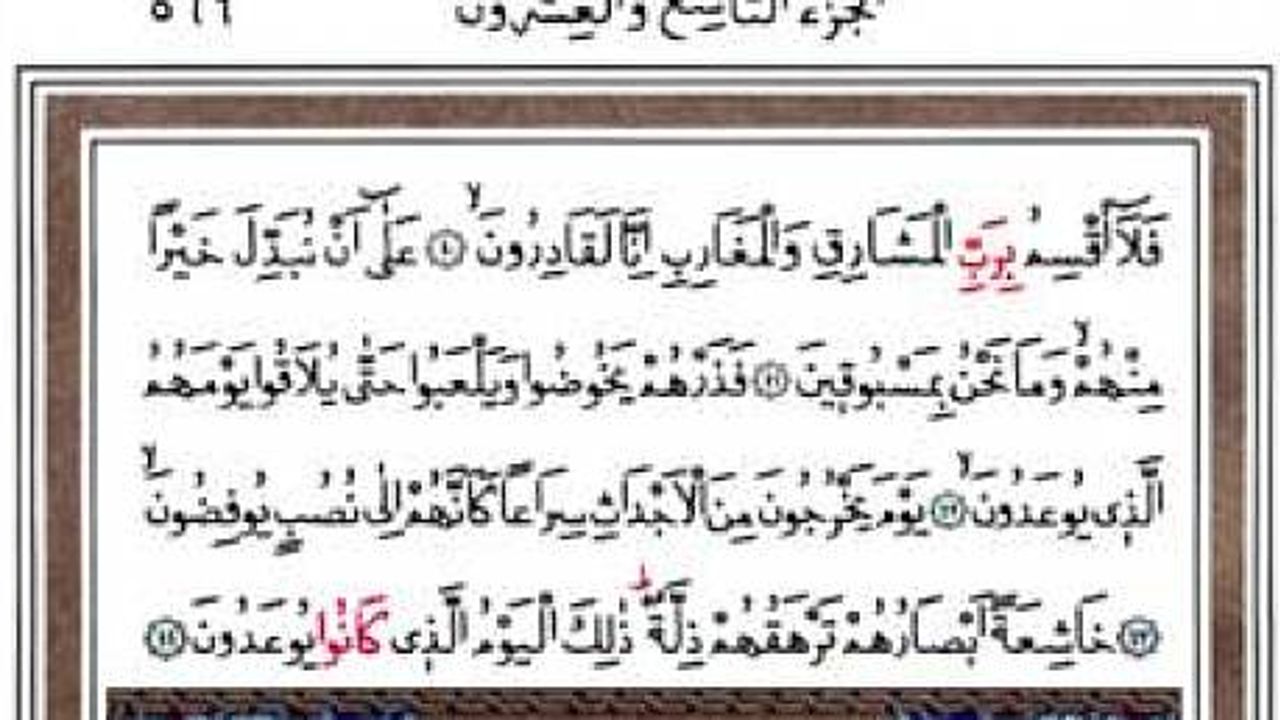 الجزء التاسع والعشرون
فَلَآ اُقْسِمُ بِرَبِّ الْمَشَارِقِ وَالْمَغَارِبِ اِنَّا لَقَادِرُونَۙ ﴿٤٠﴾ عَلٰٓى اَنْ نُبَدِّلَ خَيْرًا
مِنْهُمْۙ وَمَا نَحْنُ بِمَسْبُوقِينَ ﴿٤١﴾ فَذَرْهُمْ يَخُوضُوا وَيَلْعَبُوا حَتّٰى يُلَاقُوا يَوْمَهُمُ
الَّذِى يُوعَدُونَۙ ﴿٤٢﴾ يَوْمَ يَخْرُجُونَ مِنَ الْاَجْدَاثِ سِرَاعًا كَاَنَّهُمْ اِلٰى نُصُبٍ يُوفِضُونَۙ
﴿٤٣﴾ خَاشِعَةً اَبْصَارُهُمْ تَرْهَقُهُمْ ذِلَّةٌۜ ذٰلِكَ الْيَوْمُ الَّذِى كَانُوا يُوعَدُونَ ﴿٤٤﴾